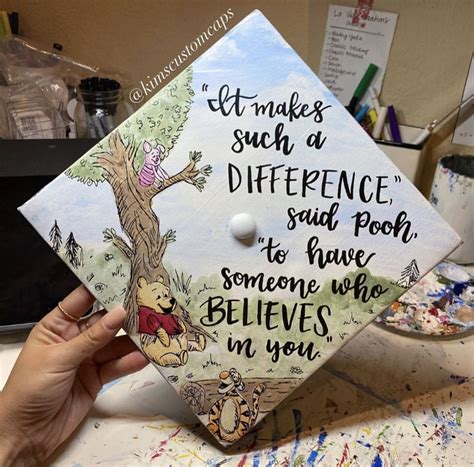 @kimscustomcaps
"It makes
such a
DIFFERENCE,"
said Pooh,
"to have
someone who
BELIEVES
in you."